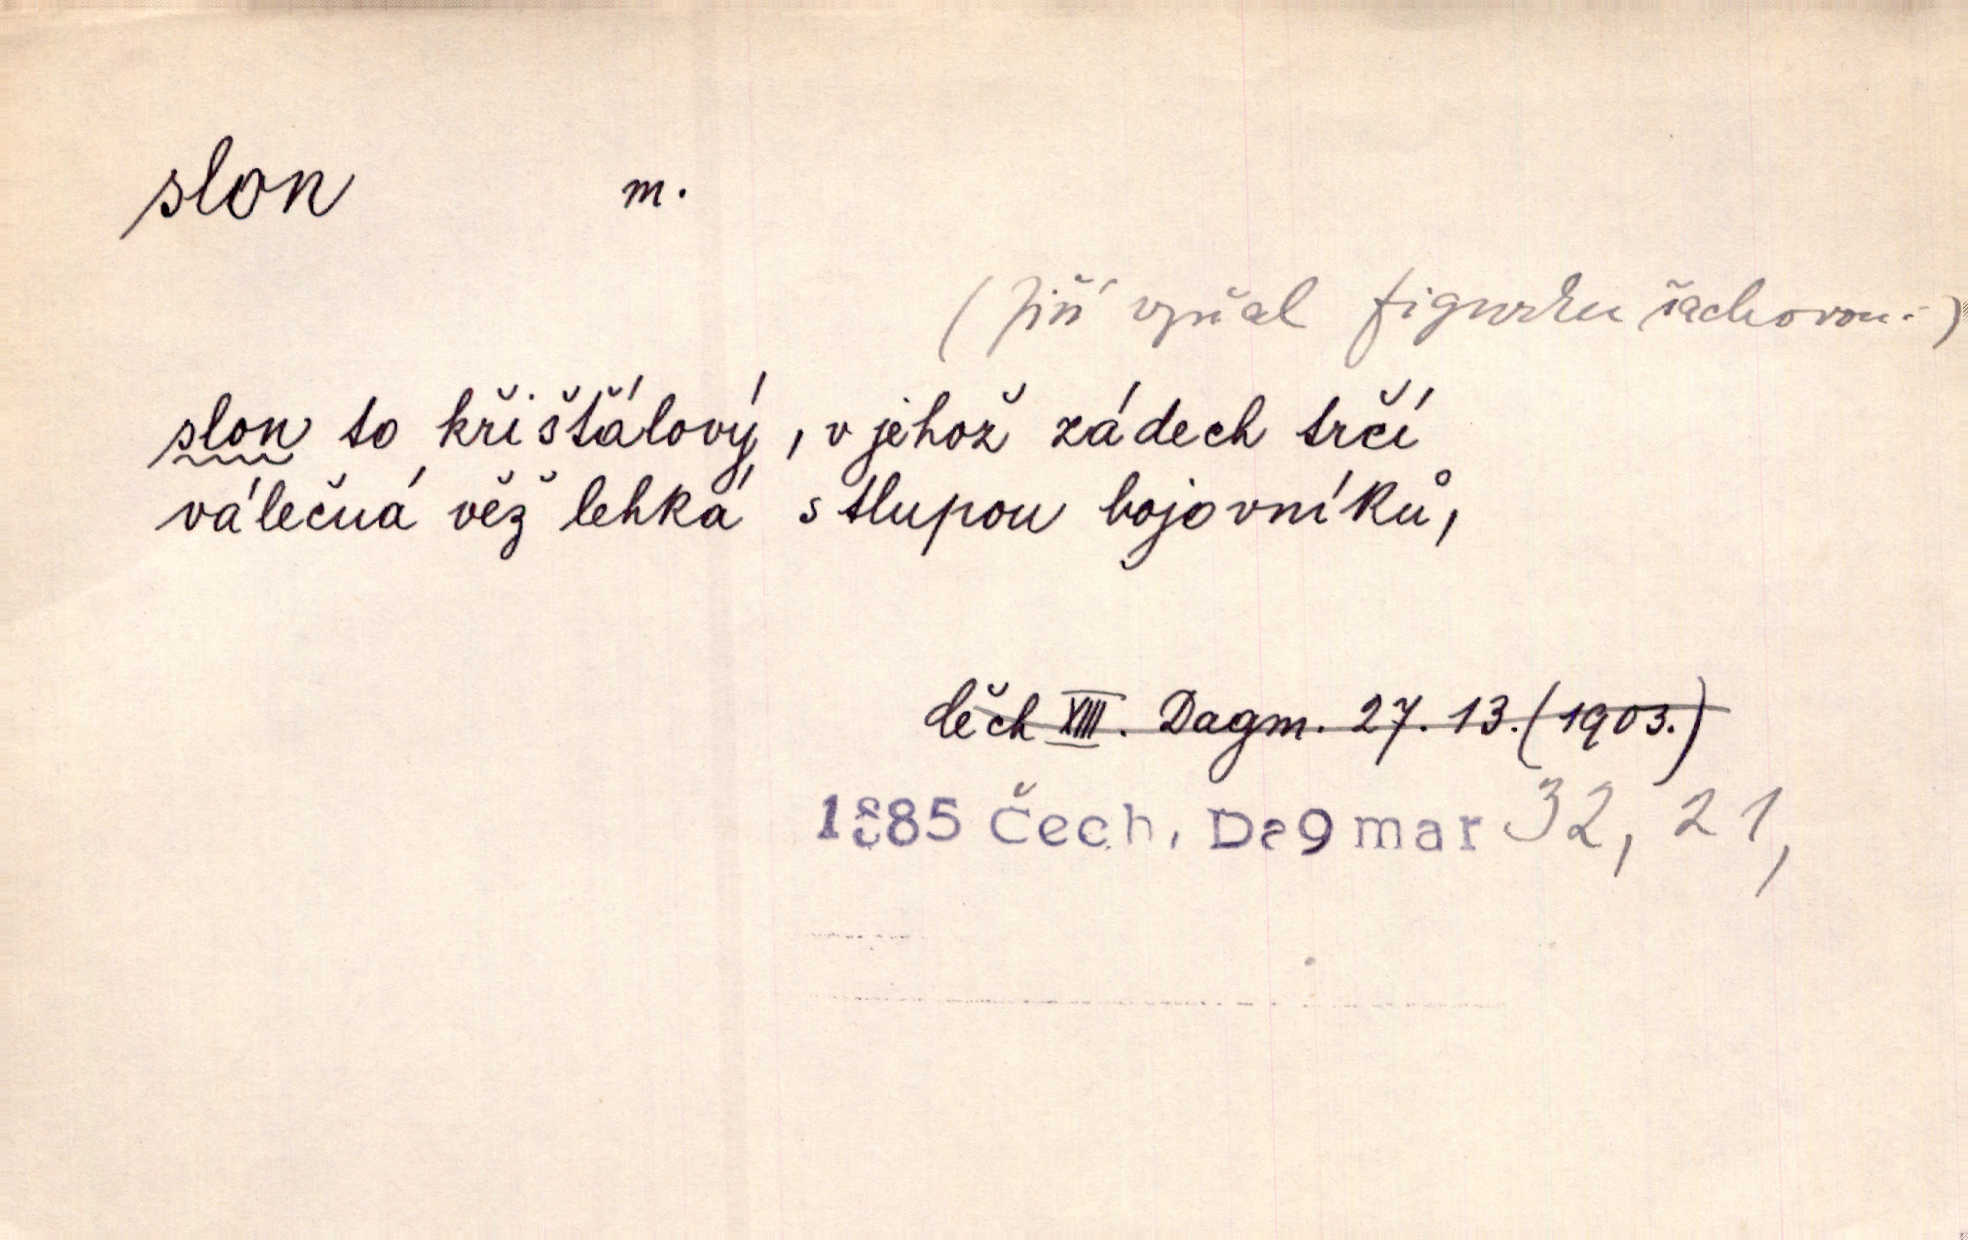 slon m.
(Jiří vzňal figurku šachovou.)
slon to křišťálový, v jehož zádech trčí
válečná věž lehká s tlupou bojovníků,
Čěch XIII. Dagm. 27. 13. (1903.)
1885 Čech, Dagmar 32, 21,